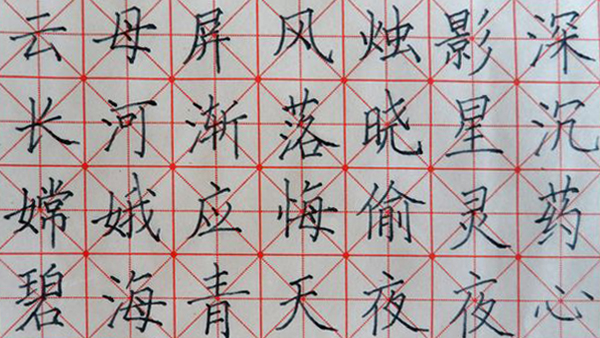 云母屏风烛影深
长河渐落晓星沉
嫦娥应悔偷灵药
碧海青天夜夜心